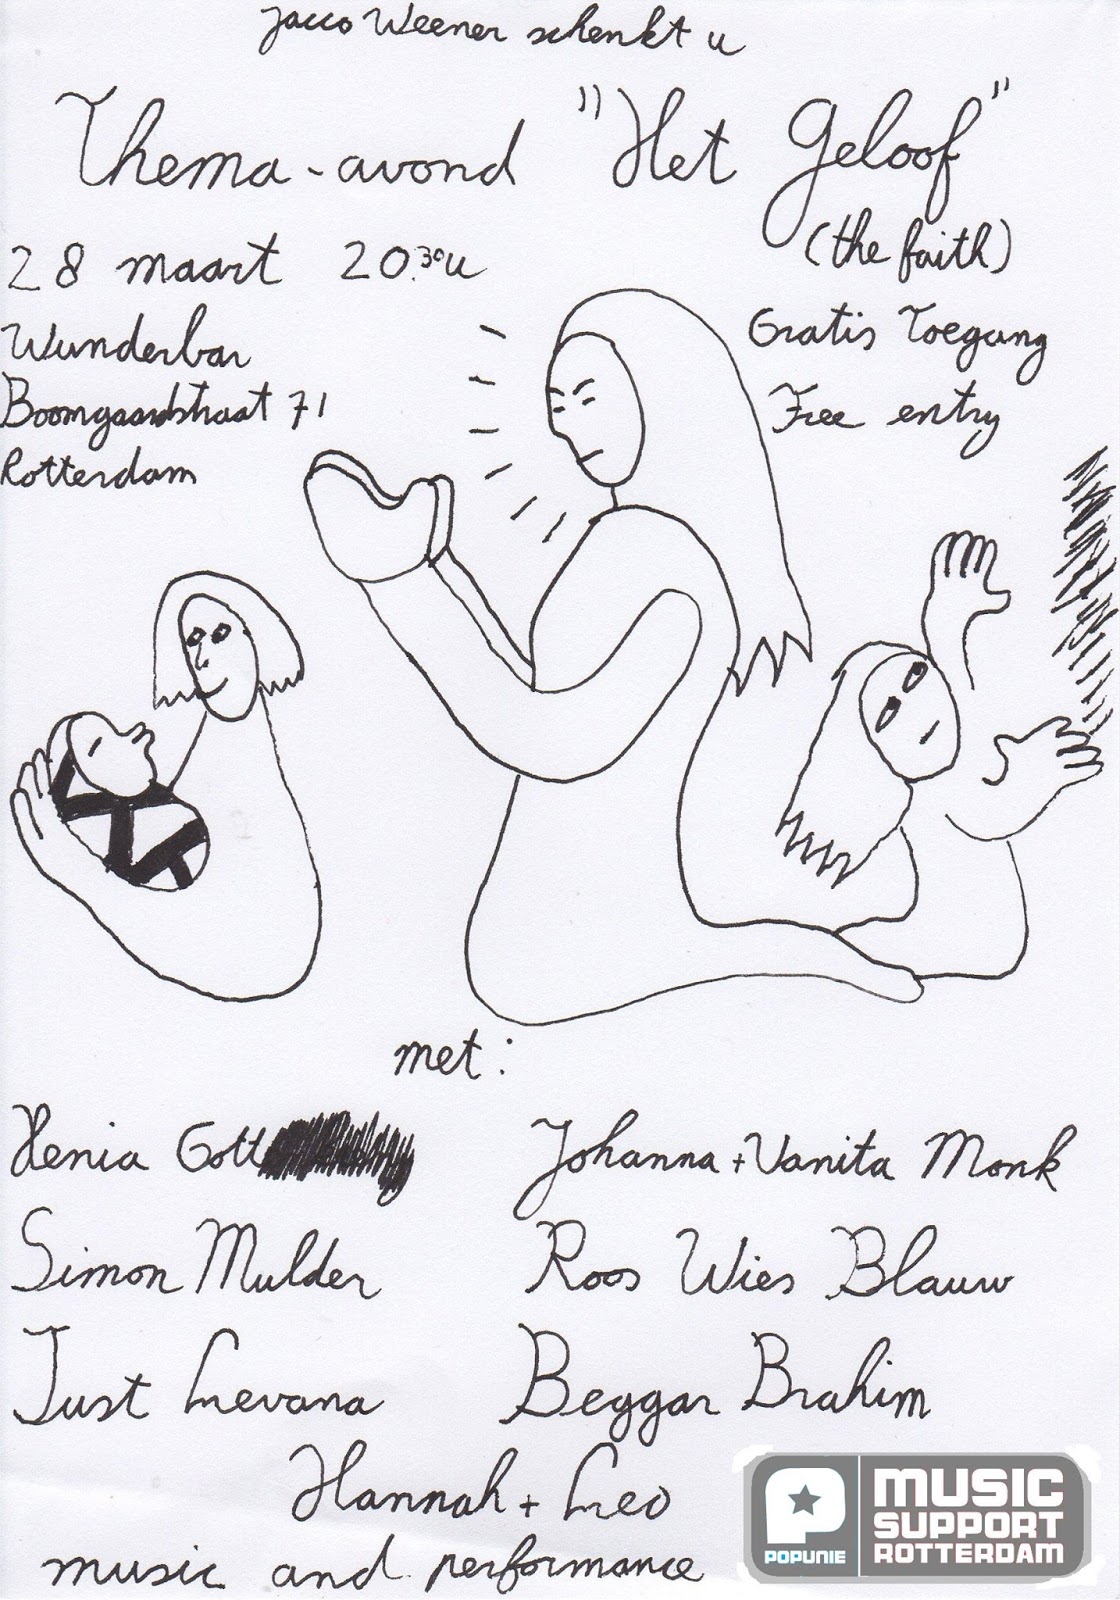 Jacco Weener schenkt u
Thema-avond "Het Geloof"
(the faith)
28 maart 20.30u
Wunderbar
Boomgaardstraat 71
Rotterdam
Gratis Toegang
Free entry
met:
Xenia Gott
Johanna + Vanita Monk
Simon Mulder
Roos Wies Blauw
Just Levana
Beggar Brahim
Hannah + Leo
music and performance
POPUNIE
MUSIC
SUPPORT
ROTTERDAM